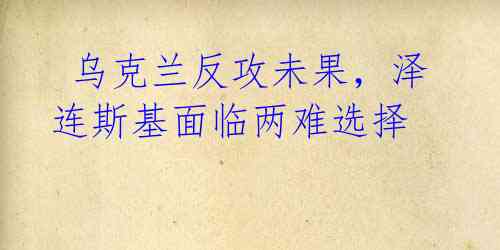 乌克兰反攻未果，泽
连斯基面临两难选择